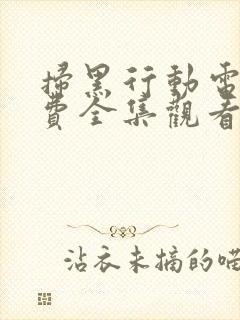 掃黑行動電
費全集觀看
沾衣未摘的喵